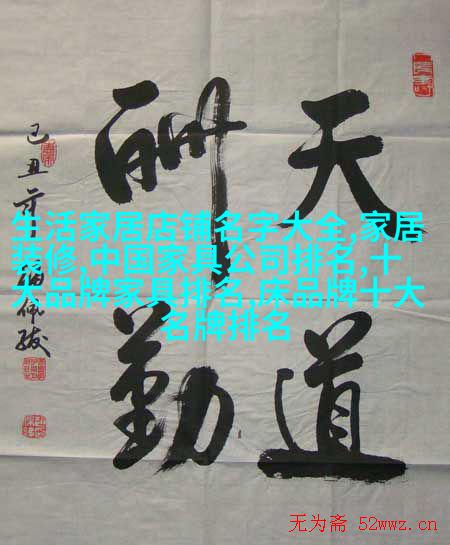 天道
酬勤
己丑
生活家居店铺名字大全,家居
装修,中国家具公司排名,十
大品牌家具排名,床品牌十大
名牌排名
无为斋 52wwz.cn